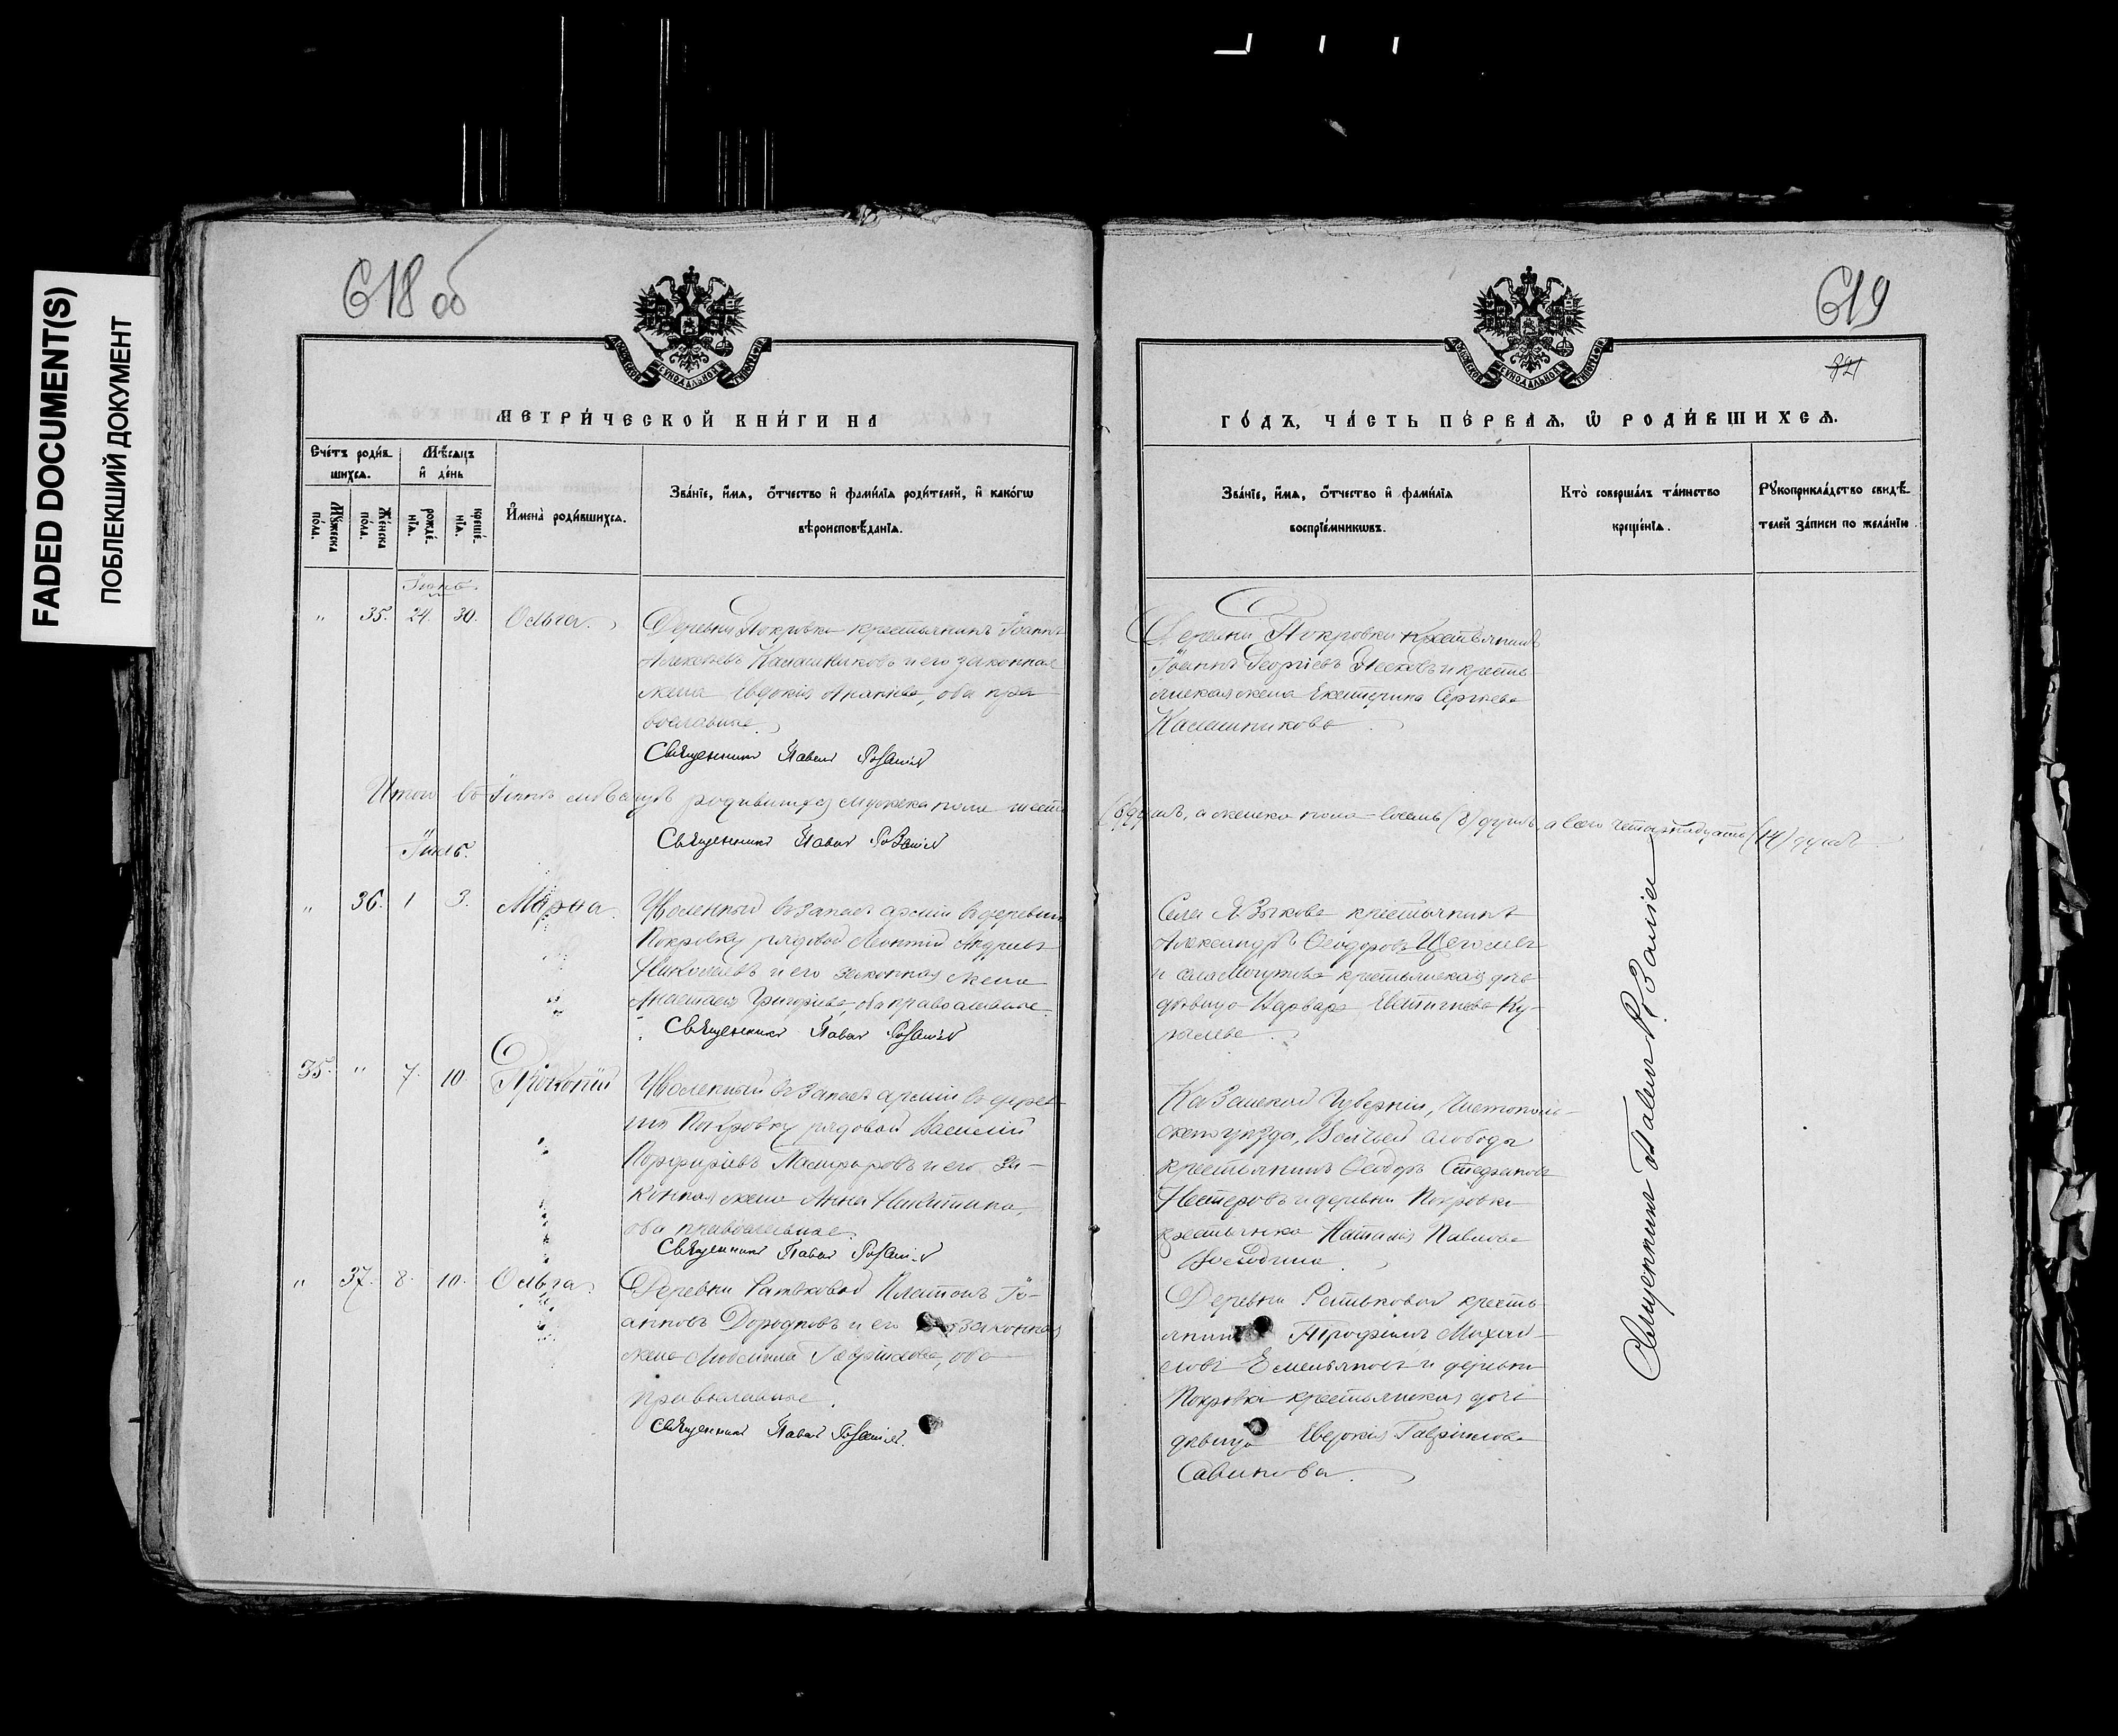 FADED DOCUMENT(S)
ПОБЛЕКШИЙ ДОКУМЕНТ
618 об
МЕТРИ́ЧЕСКОЙ КНИ́ГИ НА
Сче́тъ роди́в-
шихсѧ.
Мѣ́сѧцъ
и҆ де́нь
И҆мена̀ роди́вшихсѧ.
Зва́нїе, и҆́мѧ, ѻ҆́тчество и҆ фами́лїѧ роди́телей, и҆ како́гѡ
вѣроисповѣ́данїѧ.
Мꙋ́жеска
по́ла.
Же́нска
по́ла.
рожде́-
нїѧ.
креще́-
нїѧ.
Іюнь.
" 35. 24. 30. Ольга.
Деревни Покровки крестьянинъ Іоаннъ
Алексѣевъ Калашниковъ и его законная
жена Евдокія Ананіева, оба пра-
вославные.
Священникъ Павелъ
Итого въ Іюнѣ мѣсяцѣ родившихся мужска пола шесть
Священникъ Павелъ
Іюль.
" 36. 1 3. Марѳа.
Уволенный въ запасъ арміи въ деревню
Покровку рядовой Леонтій Андреевъ
Николаевъ и его законная жена
Анастасія Григорьева, оба православные.
Священникъ Павелъ
35. " 7. 10. Прокопій
Уволенный въ запасъ арміи въ дерев-
ню Покровку рядовой Василій
Порфирьевъ и его за-
конная жена Анна Никитина,
оба православные.
Священникъ Павелъ
" 37. 8. 10. Ольга.
Деревни Ратьковой Платонъ Іо-
анновъ Дородновъ и его законная
жена Гавріилова, оба
православные.
Священникъ Павелъ
619
721
ГО́ДЪ, ЧА́СТЬ ПЕ́РВАѦ, Ѡ҆ РОДИ́ВШИХСѦ.
Зва́нїе, и҆́мѧ, ѻ҆́тчество и҆ фами́лїѧ
воспрїе́мникѡвъ.
Кто̀ соверша́лъ та́инство
креще́нїѧ.
Рꙋкоприкла́дство свидѣ́-
телей за́писи по жела́нїю
Деревни Покровки крестьянинъ
Іоаннъ Георгіевъ и кресть-
янская жена Екатерина Сергѣева
Калашникова
(6) душъ, а женска пола - восемь (8) душъ, а всего четырнадцать (14) душъ.
Села Языкова крестьянинъ
Александръ Ѳеодоровъ Щеголевъ
и села крестьянская дочь
дѣвица Варвара Евстигнѣева Ку-
Казанской Губерніи, Чистополь-
скаго уѣзда, слободы
крестьянинъ Ѳеодоръ Стефановъ
Нестеровъ и деревни Покровки
крестьянка Наталія Павлова
Деревни Ратьковой кресть-
янинъ Трофимъ Михаи-
ловъ Емельяновъ и деревни
Покровки крестьянская дочь
дѣвица Евдокія Гавріилова
Савинова.
Священникъ Павелъ